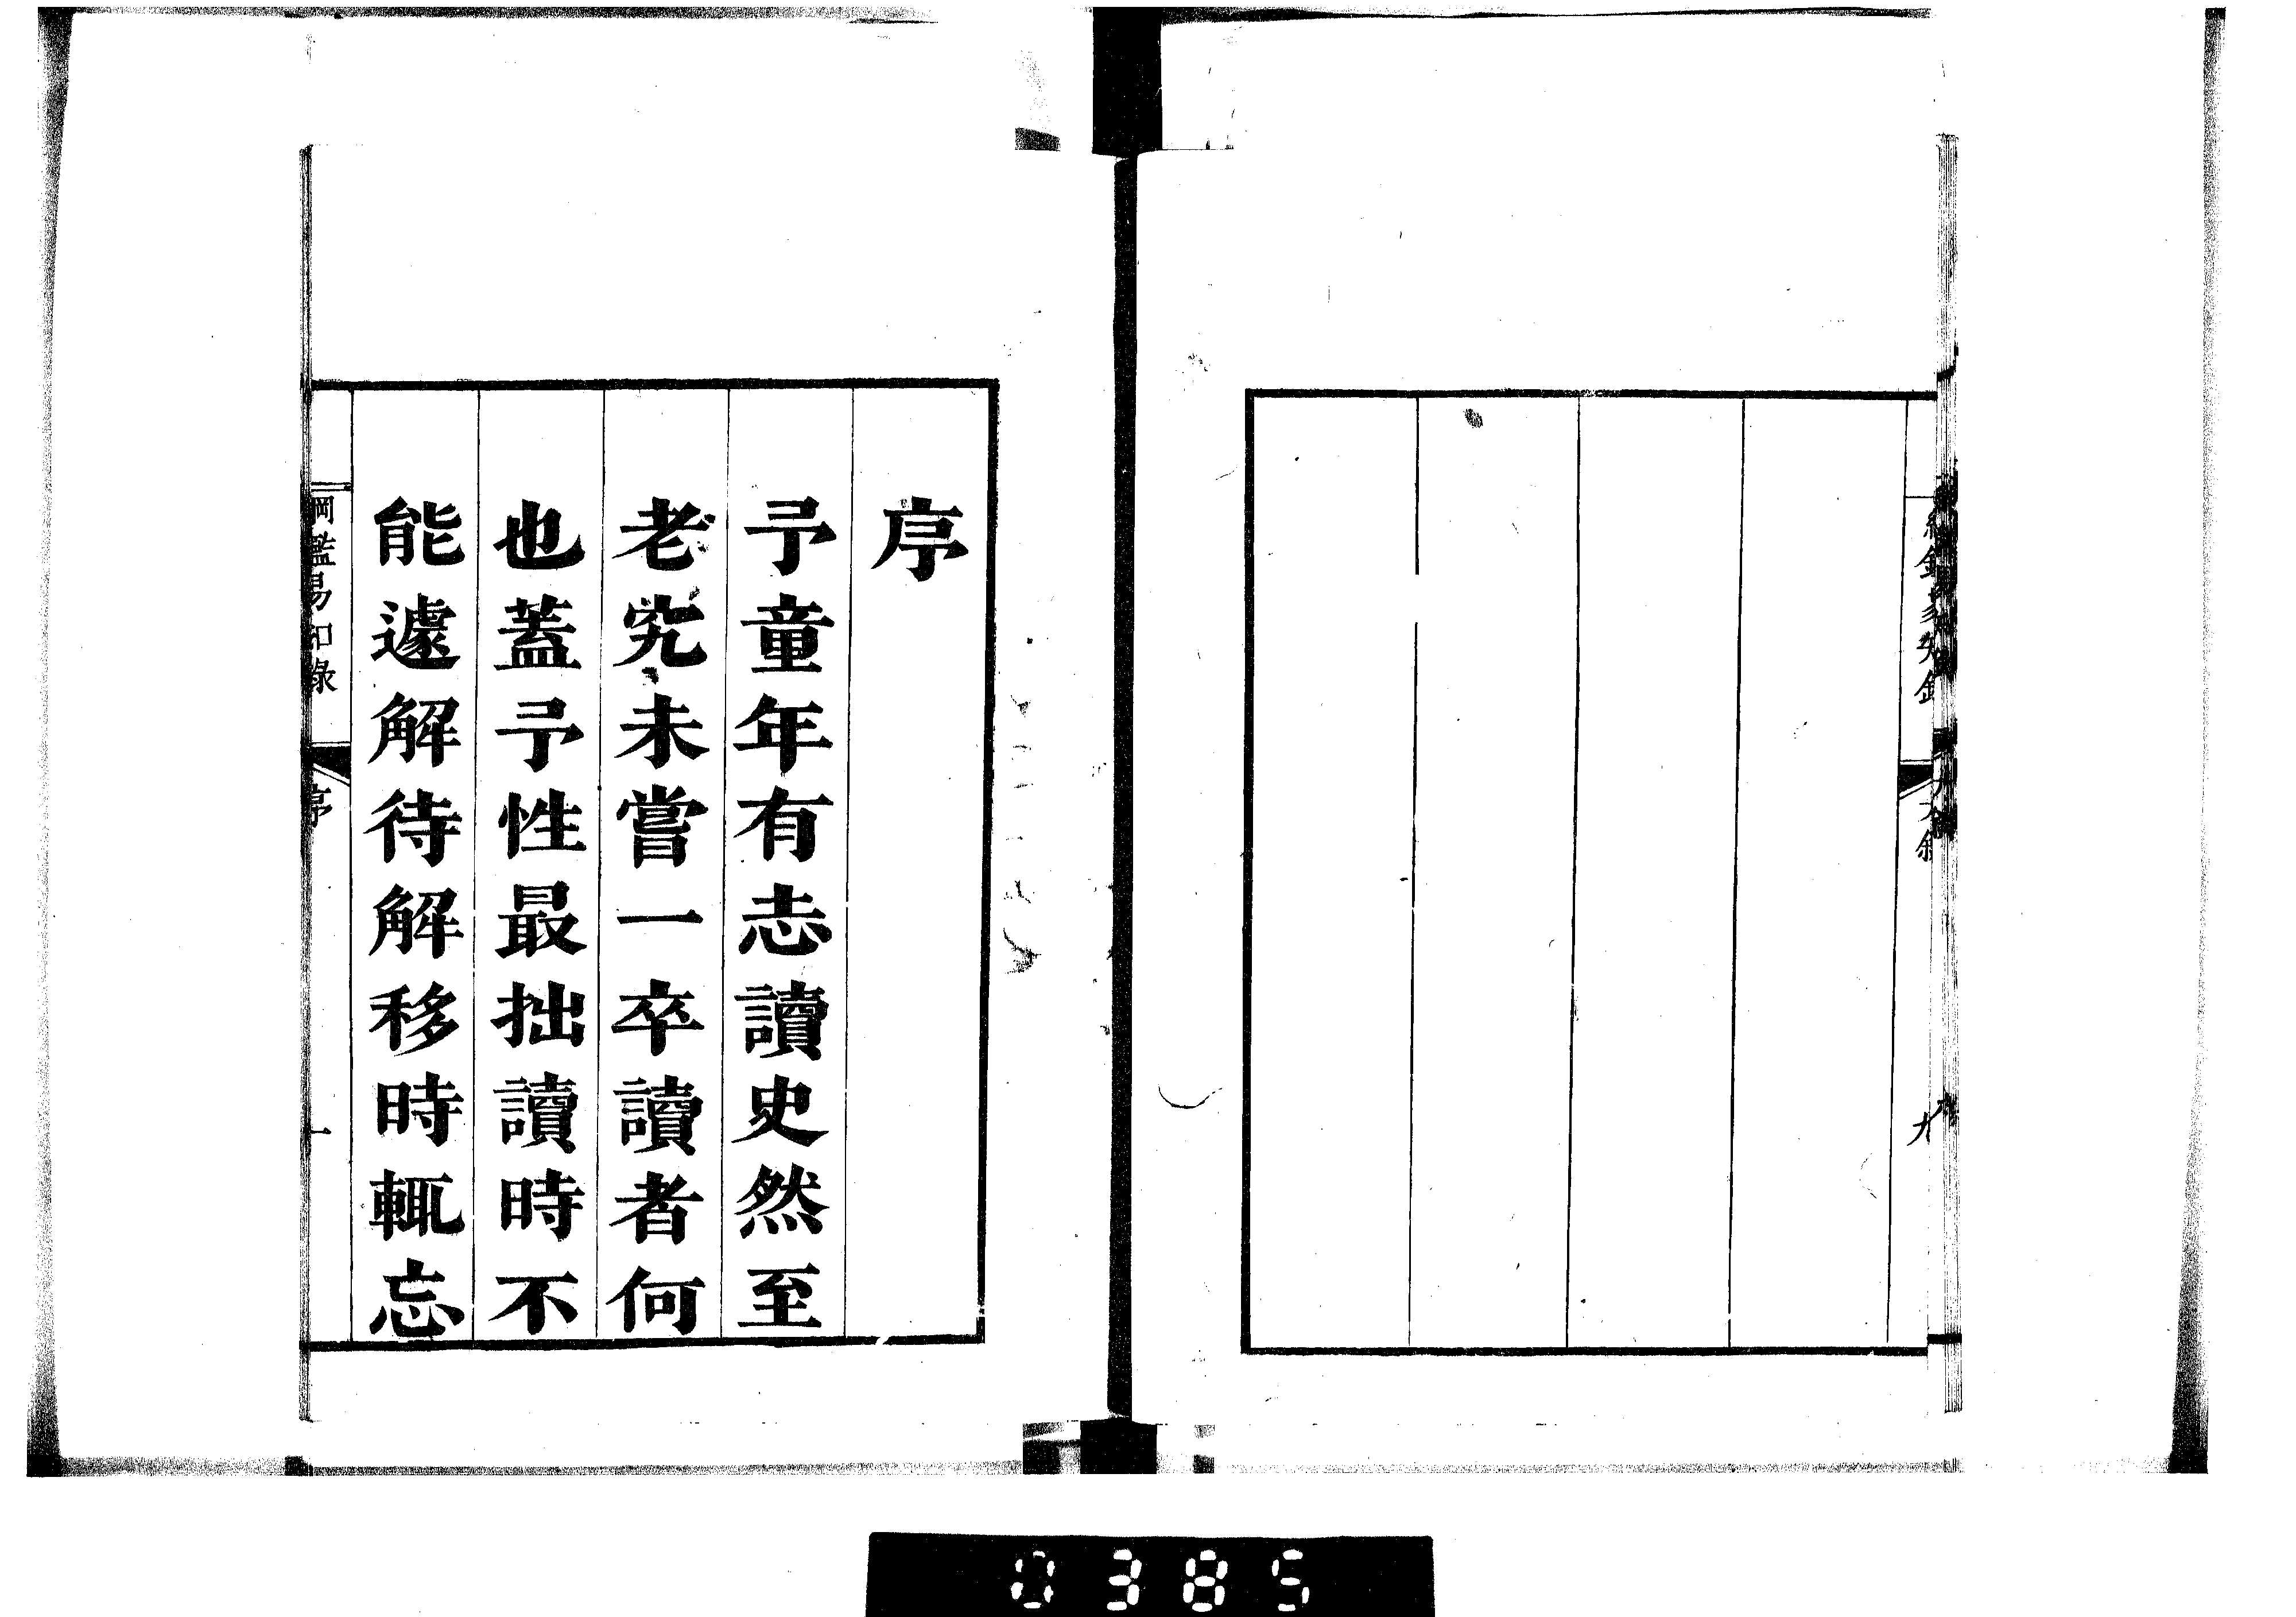 序
予童年有志讀史然至
老究未嘗一卒讀者何
也蓋予性最拙讀時不
能遽解待解移時輒忘
綱鑑易知錄
序
一
0385